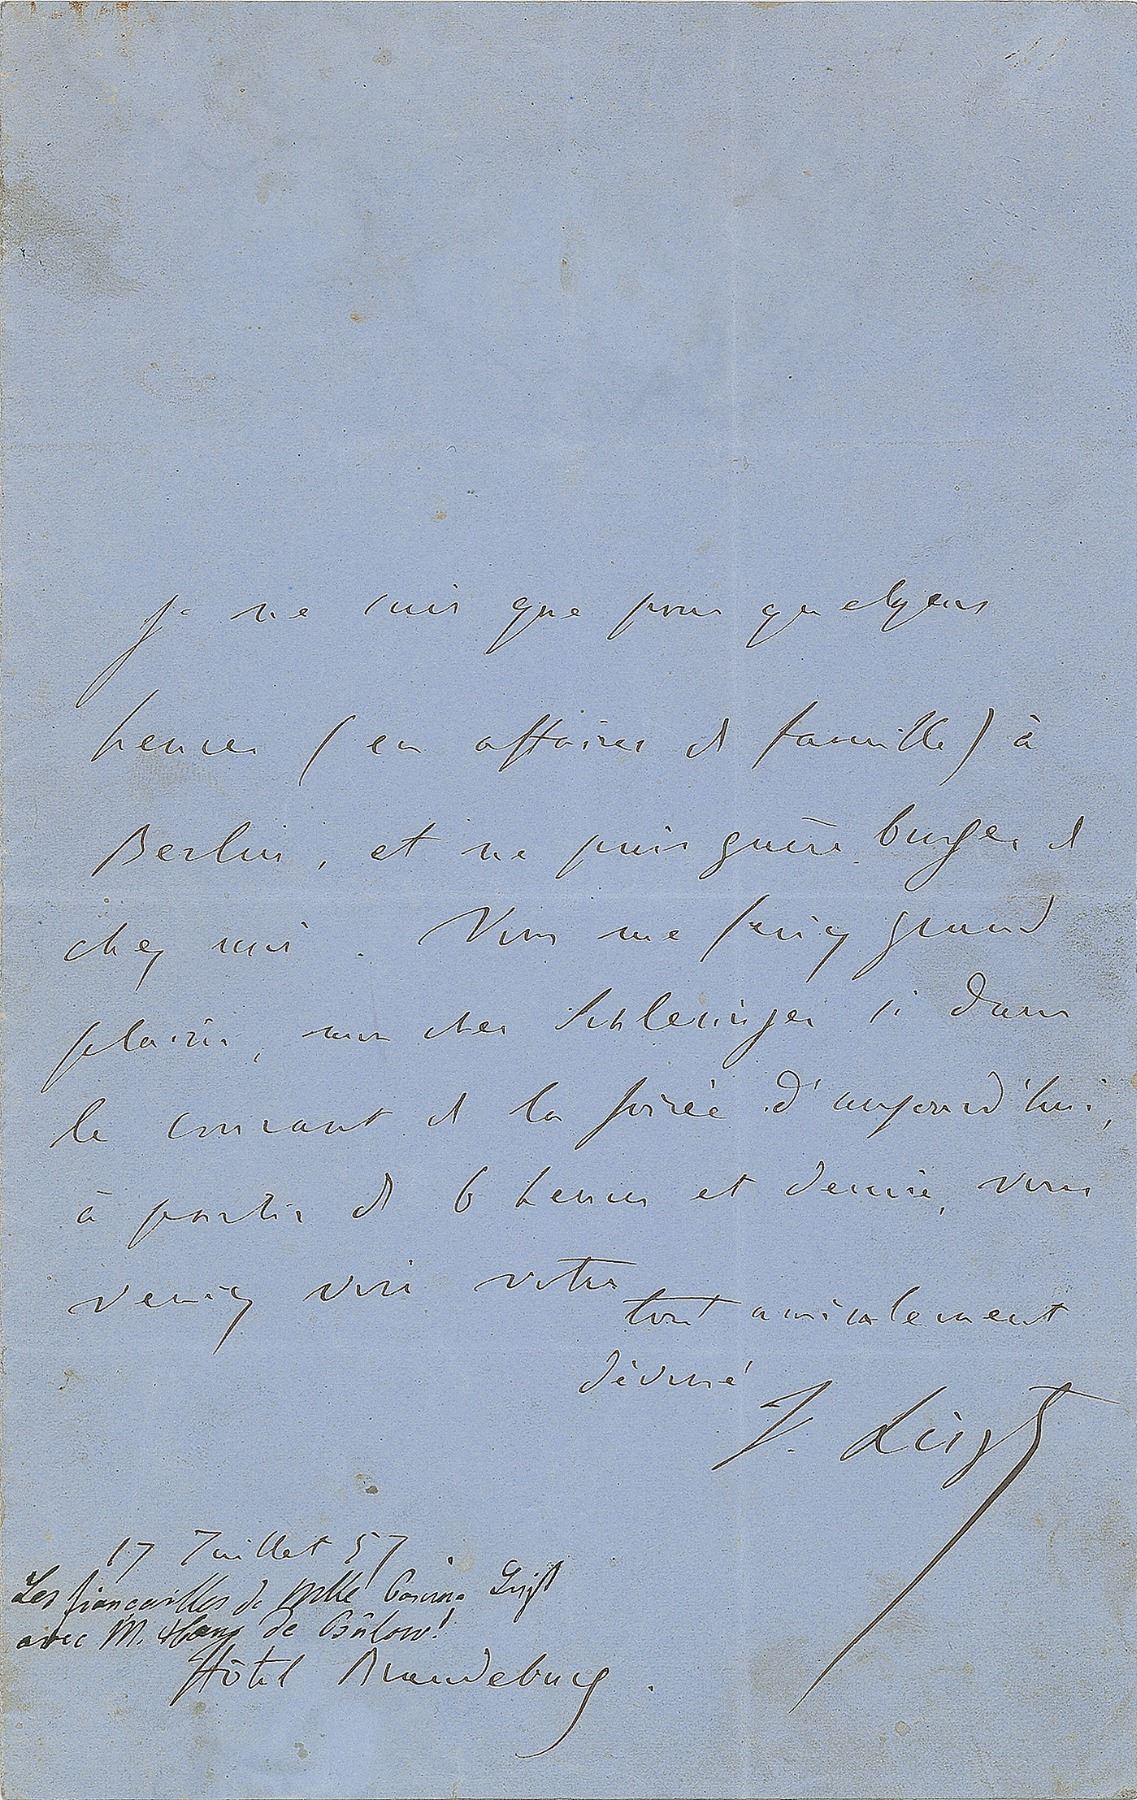 Je ne suis que pour quelques
heures (en affaires de famille) à
Berlin, et ne puis guère bouger de
chez moi. Vous me feriez grand
plaisir, mon cher Schlesinger si dans
le courant de la soirée d'aujourd'hui,
à partir de 6 heures et demie, vous
veniez voir votre
tout amicalement
dévoué
F. Liszt
17 Juillet 57
Les fiançailles de Mlle Cosima Liszt
avec M. Hans de Bülow!
Hôtel Brandeburg.